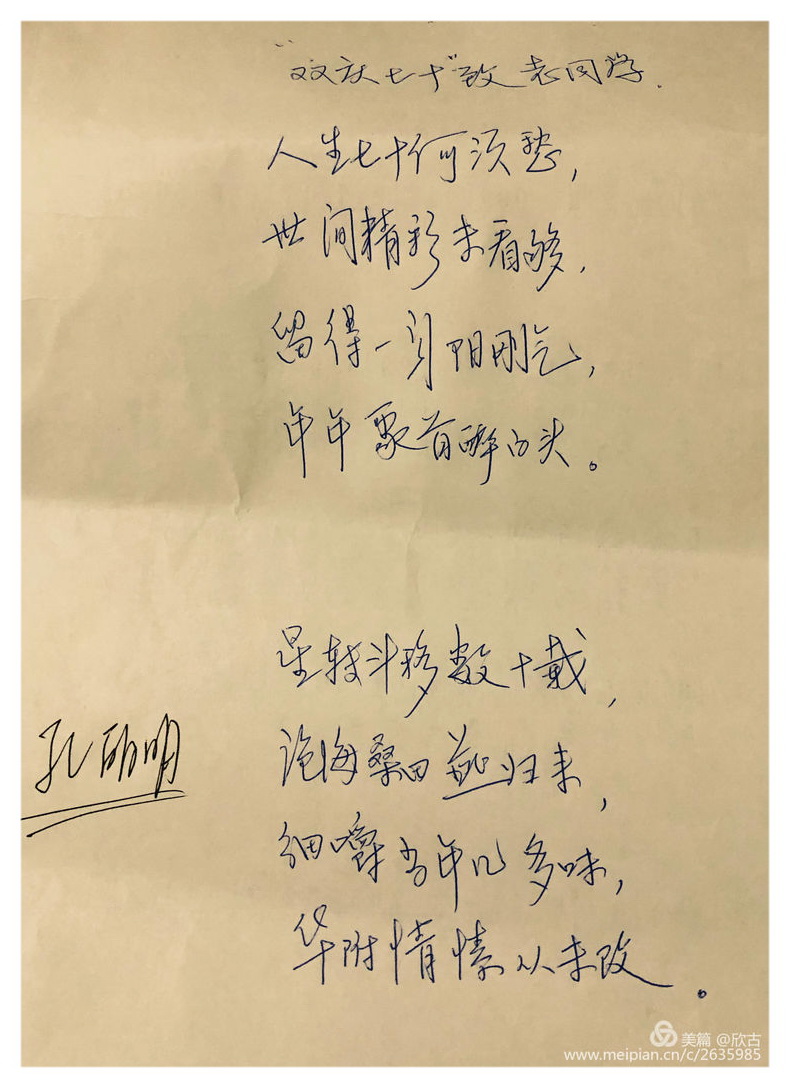 "双庆七十"致老同学.
人生七十何须愁,
世间精彩未看够,
留得一身阳刚气,
年年聚首醉白头。
星转斗移数十载,
沧海桑田燕归来,
细嚼当年几多味,
华附情愫从未改。
孔丽明
美篇 @欣古
www.meipian.cn/c/2635985